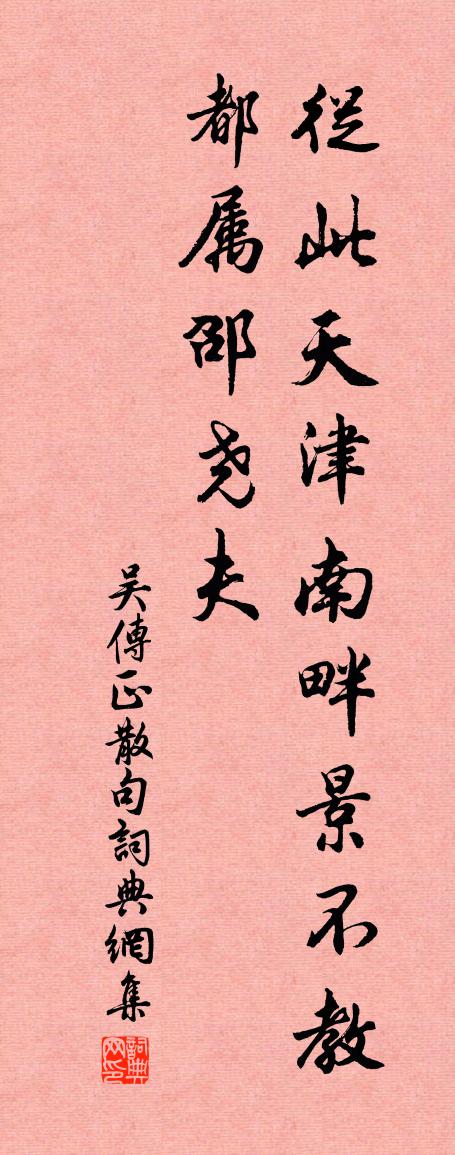 從此天津南畔景不教
都属邵尧夫
吴傳正散句詞典網集
詞典网印